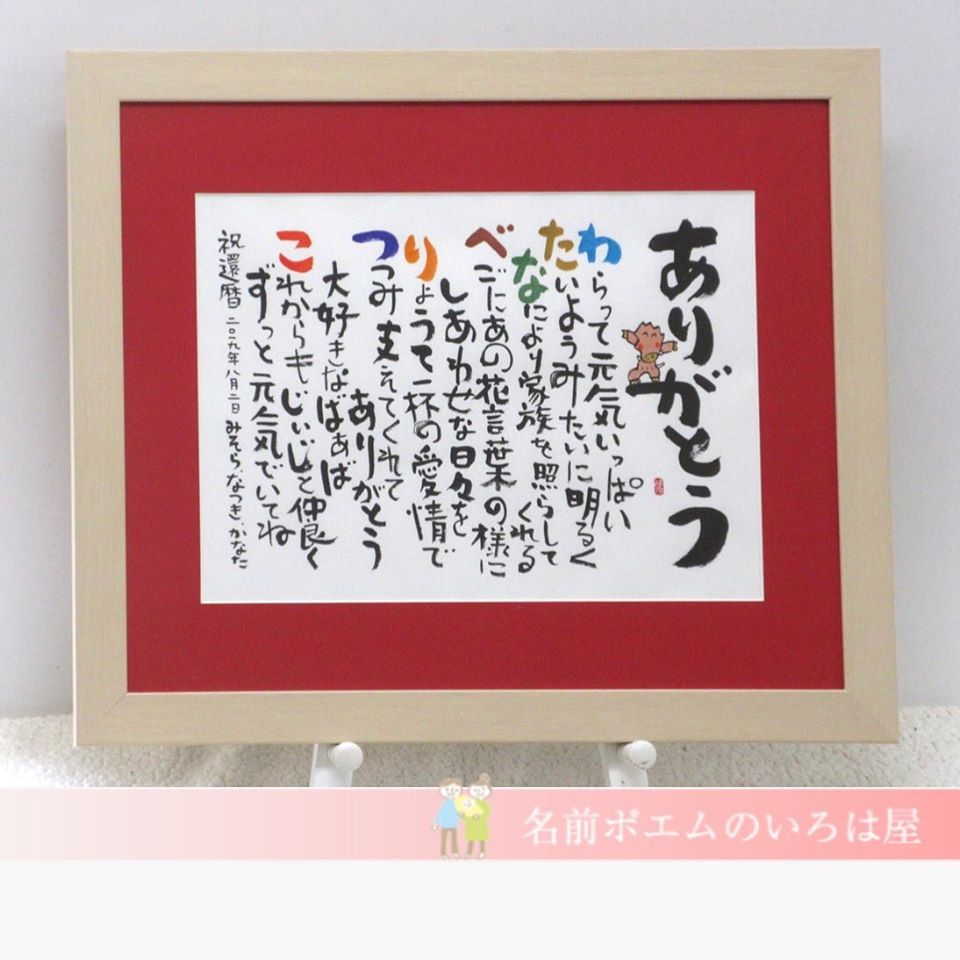 ありがとう
わらって元気いっぱい
たいようみたいに明るく
なにより家族を照らして
くれる
べごにあの花言葉の様に
しあわせな日々を
りょうて一杯の愛情で
つつみ支えてくれて
ありがとう
大好きなばぁば
これからもじいじと仲良く
ずっと元気でいてね
祝還暦 二〇一九年八月二日 みそら、なつき、かなた
名前ポエムのいろは屋